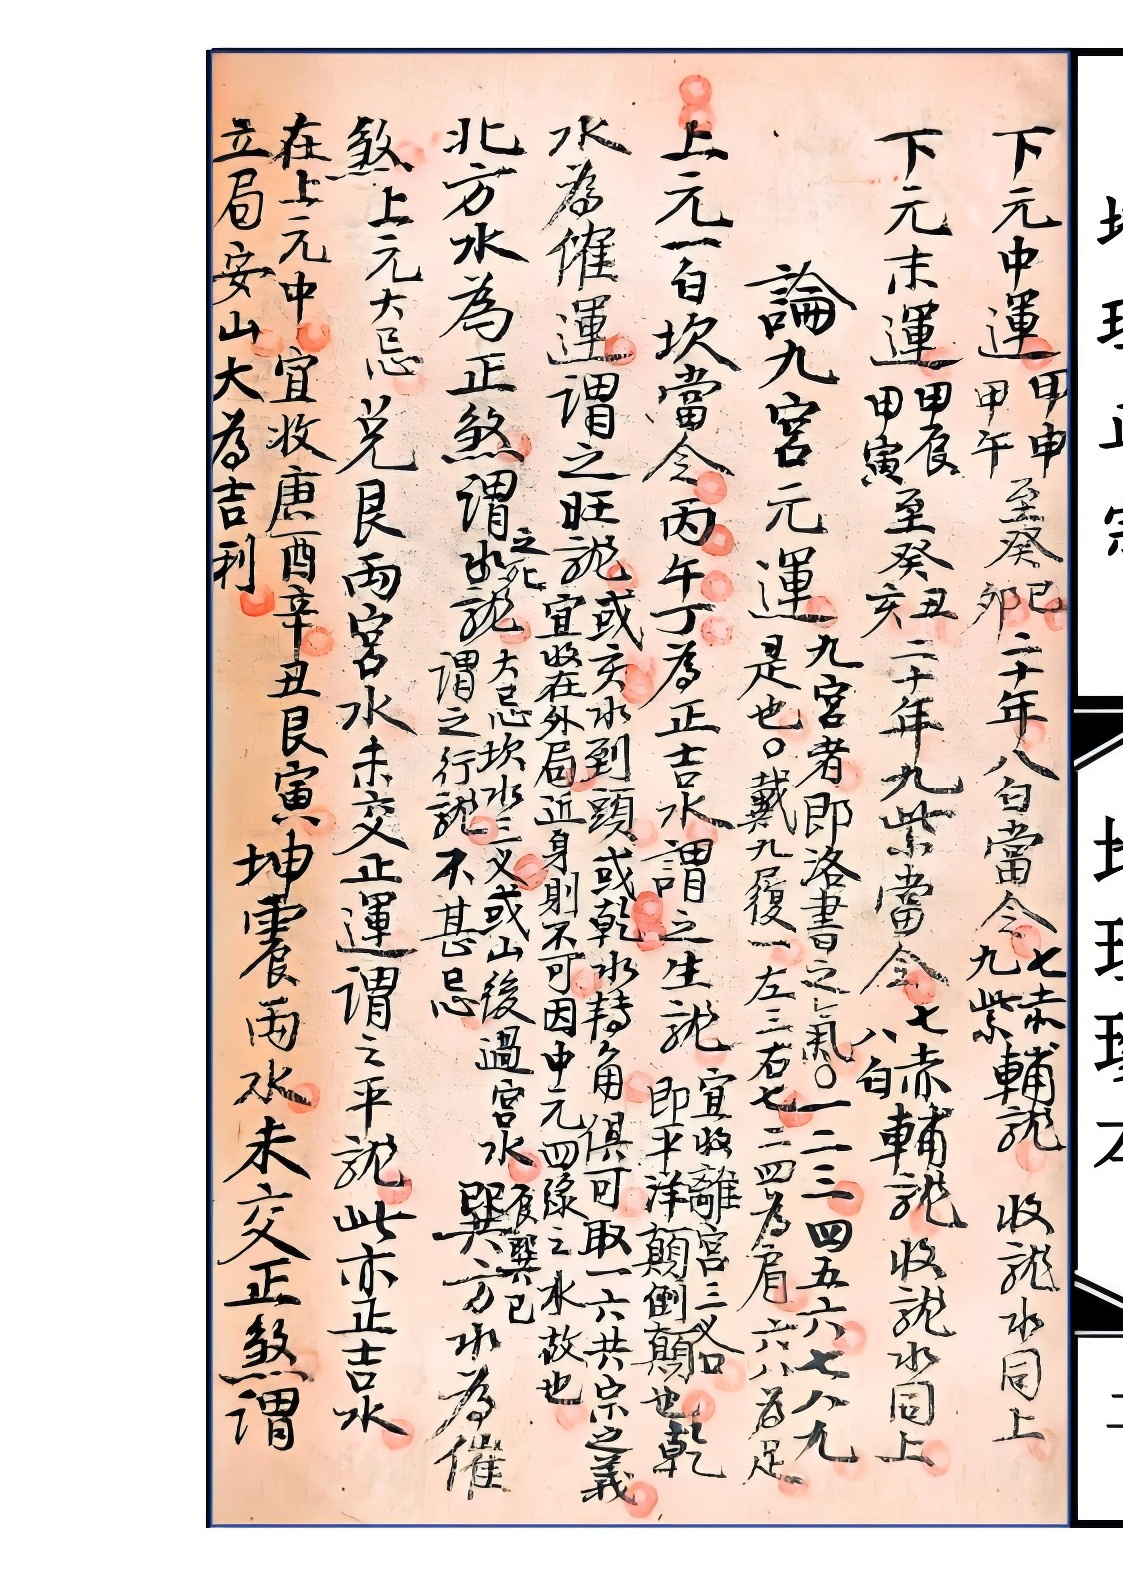 下元中運甲申甲午至癸巳卯二十年八白當令七赤九紫輔龍　收龍水同上
下元末運甲辰甲寅至癸丑亥二十年九紫當令七赤八白輔龍　收龍水同上
論九宮元運九宮者即洛書之氣。一二三四五六七八九
是也。戴九履一左三右七二四為肩六八為足
上元一白坎當令丙午丁為正吉水謂之生龍宜收離宮三义
即平洋顛倒顛也乾
水為催運謂之旺龍或亥水到頭或乾水轉角俱可取一六共宗之義
宜收在外局近身則不可因中元四綠之水故也
北方水為正煞謂之死水龍大忌坎水三义或山後過宮水辰巽巳
謂之行龍不甚忌巽方水為催
煞上元大忌　兌艮兩宮水未交正運謂之平龍此亦正吉水
在上元中宜收庚酉辛丑艮寅坤震兩水未交正煞謂
立局安山大為吉利
地理正宗
地理